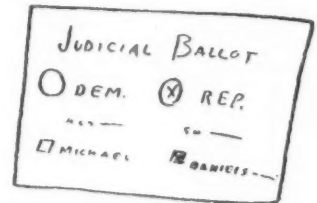 JUDICIAL BALLOT
DEM. REP.
MICHAEL DANIELS